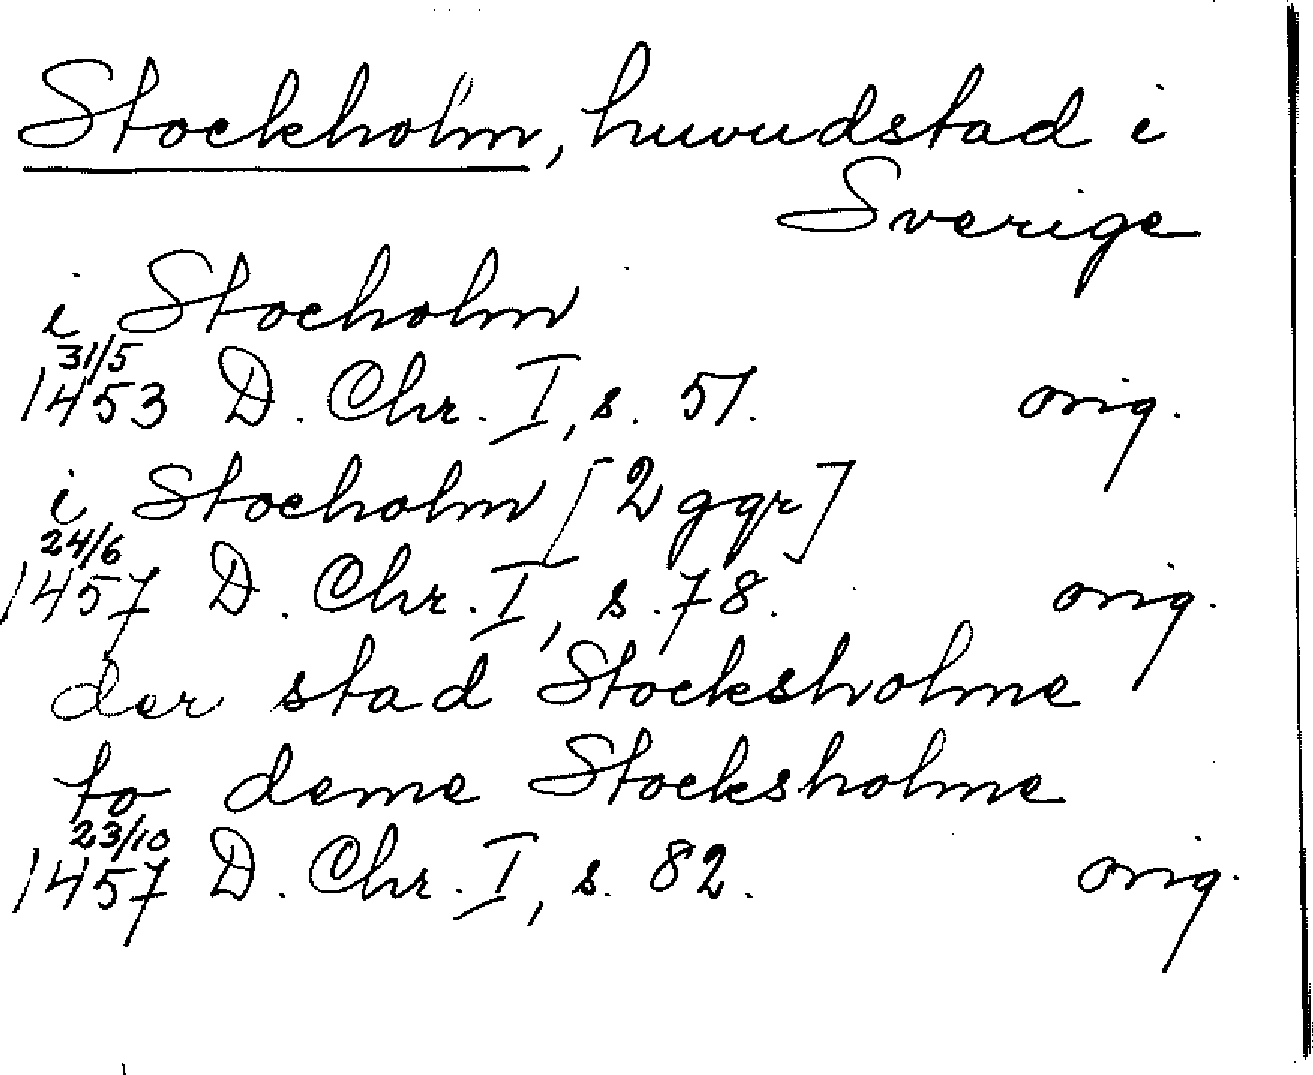 Stockholm, huvudstad i
Sverige
i Stocholm
31/5
1453 D. Chr. I, s. 51. orig.
i Stocholm [2 ggr]
24/6
1457 D. Chr. I, s. 78. orig.
der stad Stocksholme
to deme Stocksholme
23/10
1457 D. Chr. I, s. 82. orig.